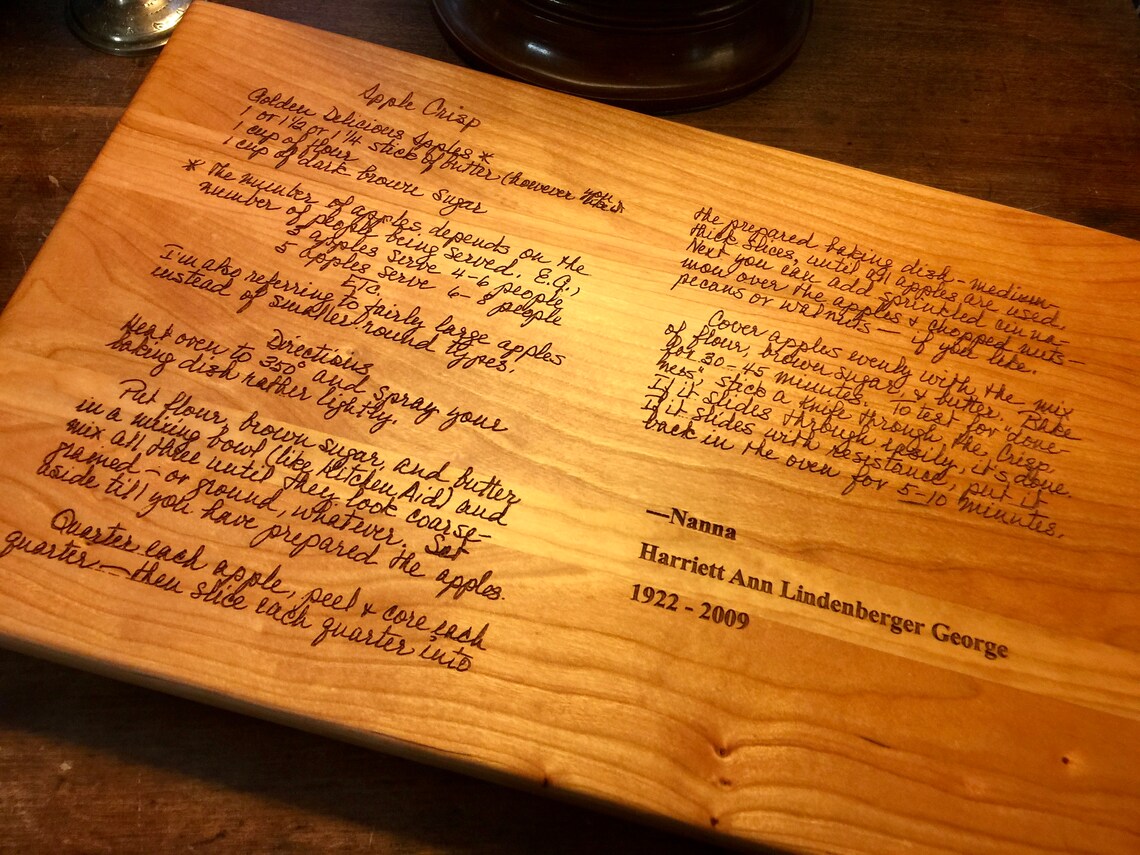 Apple Crisp
Golden Delicious Apples *
1 or 1½ or 1¼ stick of butter (however you
1 cup of flour
1 cup of dark brown sugar
* The number of apples depends on the
number of people being served. E.G.,
3 apples serve 4-6 people
5 apples serve 6-8 people
ETC.
I'm also referring to fairly large apples
instead of smaller round types.
Directions
Heat oven to 350° and spray your
baking dish rather lightly.
Put flour, brown sugar, and butter
in a mixing bowl (like KitchenAid) and
mix all three until they look coarse-
grained - or ground, whatever. Set
aside till you have prepared the apples.
Quarter each apple, peel & core each
quarter - then slice each quarter into
the prepared baking dish - medium-
thick slices, until all apples are used.
Next you can add sprinkled cinna-
mon over the apples & chopped nuts -
pecans or walnuts - if you like.
Cover apples evenly with the mix
of flour, brown sugar, & butter. Bake
for 30-45 minutes. To test for "done-
ness", stick a knife through the crisp
If it slides through easily, it's done.
If it slides with resistance, put it
back in the oven for 5-10 minutes.
—Nanna
Harriett Ann Lindenberger George
1922 - 2009